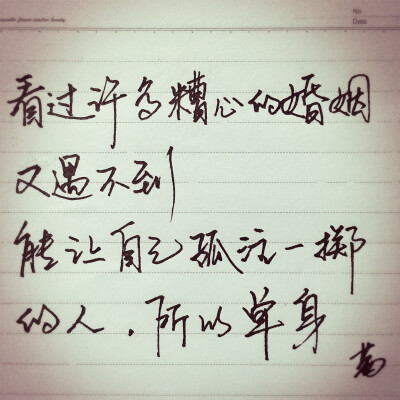 No
Date
看过许多糟心的婚姻
又遇不到
能让自己孤注一掷
的人.所以单身